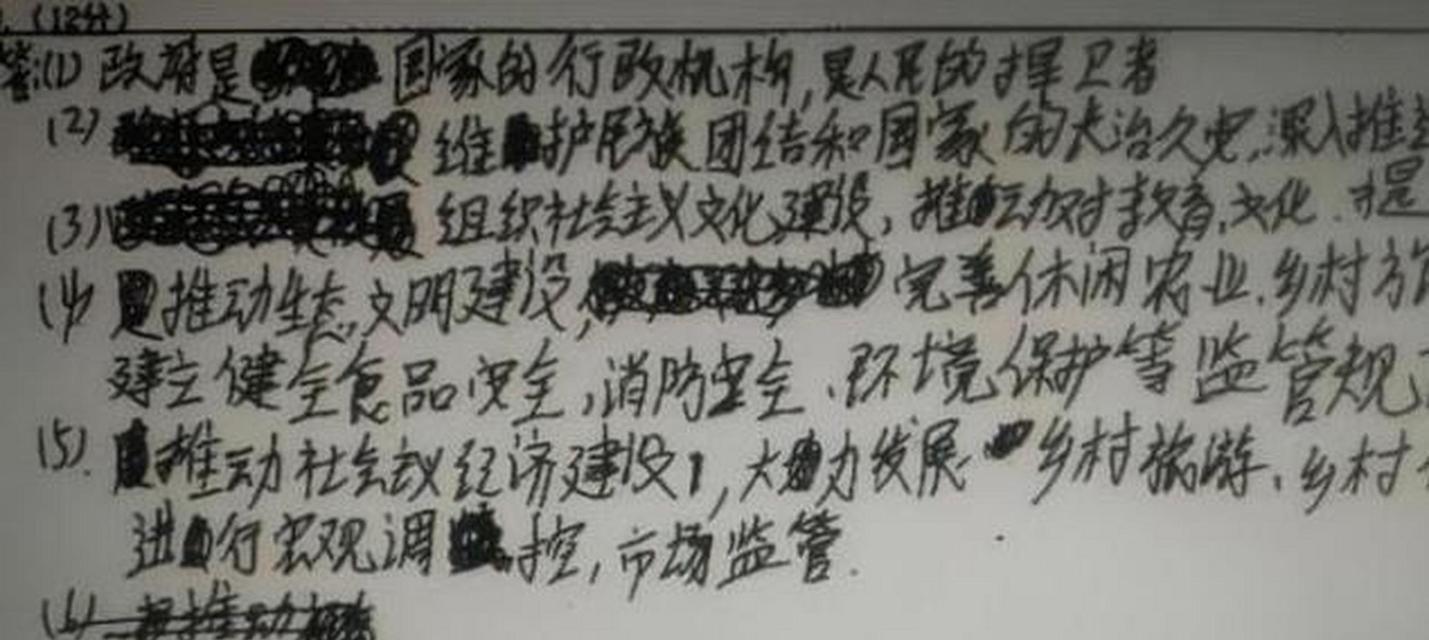 (12分)
答:(1)政府是国家的行政机构,是人民的捍卫者
(2)维护民族团结和国家的长治久安,深入推进
(3)组织社会主义文化建设,推动对教育、文化、提
(4)推动生态文明建设,完善休闲农业、乡村旅
建立健全食品安全,消防安全、环境保护等监管规
(5).推动社会主义经济建设,大力发展乡村旅游、乡村
进行宏观调控,市场监管.
(6)